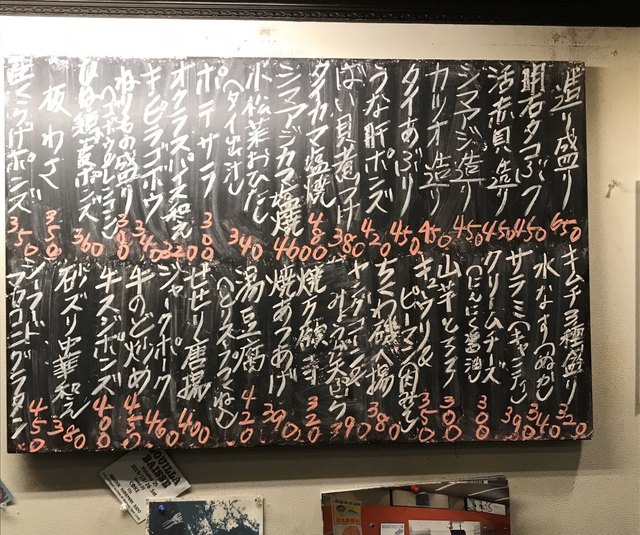 造り盛り 650
明石タコぶつ 450
活赤貝造り 450
シマアジ造り 450
カツオ造り 450
タイあぶり 450
うな肝ポンズ 420
ばい貝煮つけ 380
タイカマ塩焼 480
シマアジカマ塩焼 460
小松菜おひたし
(タイ出汁) 340
ポテサラ 300
オクラスパイス和え 320
キンピラゴボウ 340
ねりもの盛り
ポンズ 360
板わさ 350
生くらげポンズ 350
キムチ3種盛り 320
水なす(ぬか) 340
サラミ(キャンティ) 390
クリームチーズ
(にんにく醤油) 300
山芋とろろ 300
キュウリ&
ピーマン(肉みそ) 350
ちくわ磯辺揚 380
ヤングコーン&
みょうが天ぷら 390
焼万願寺 320
焼あつあげ 390
湯豆腐 420
せせり唐揚 400
ジャークポーク 460
牛のど炒め 450
牛スジポンズ 400
砂ズリ中華和え 380
シーフード
マカロニグラタン 450